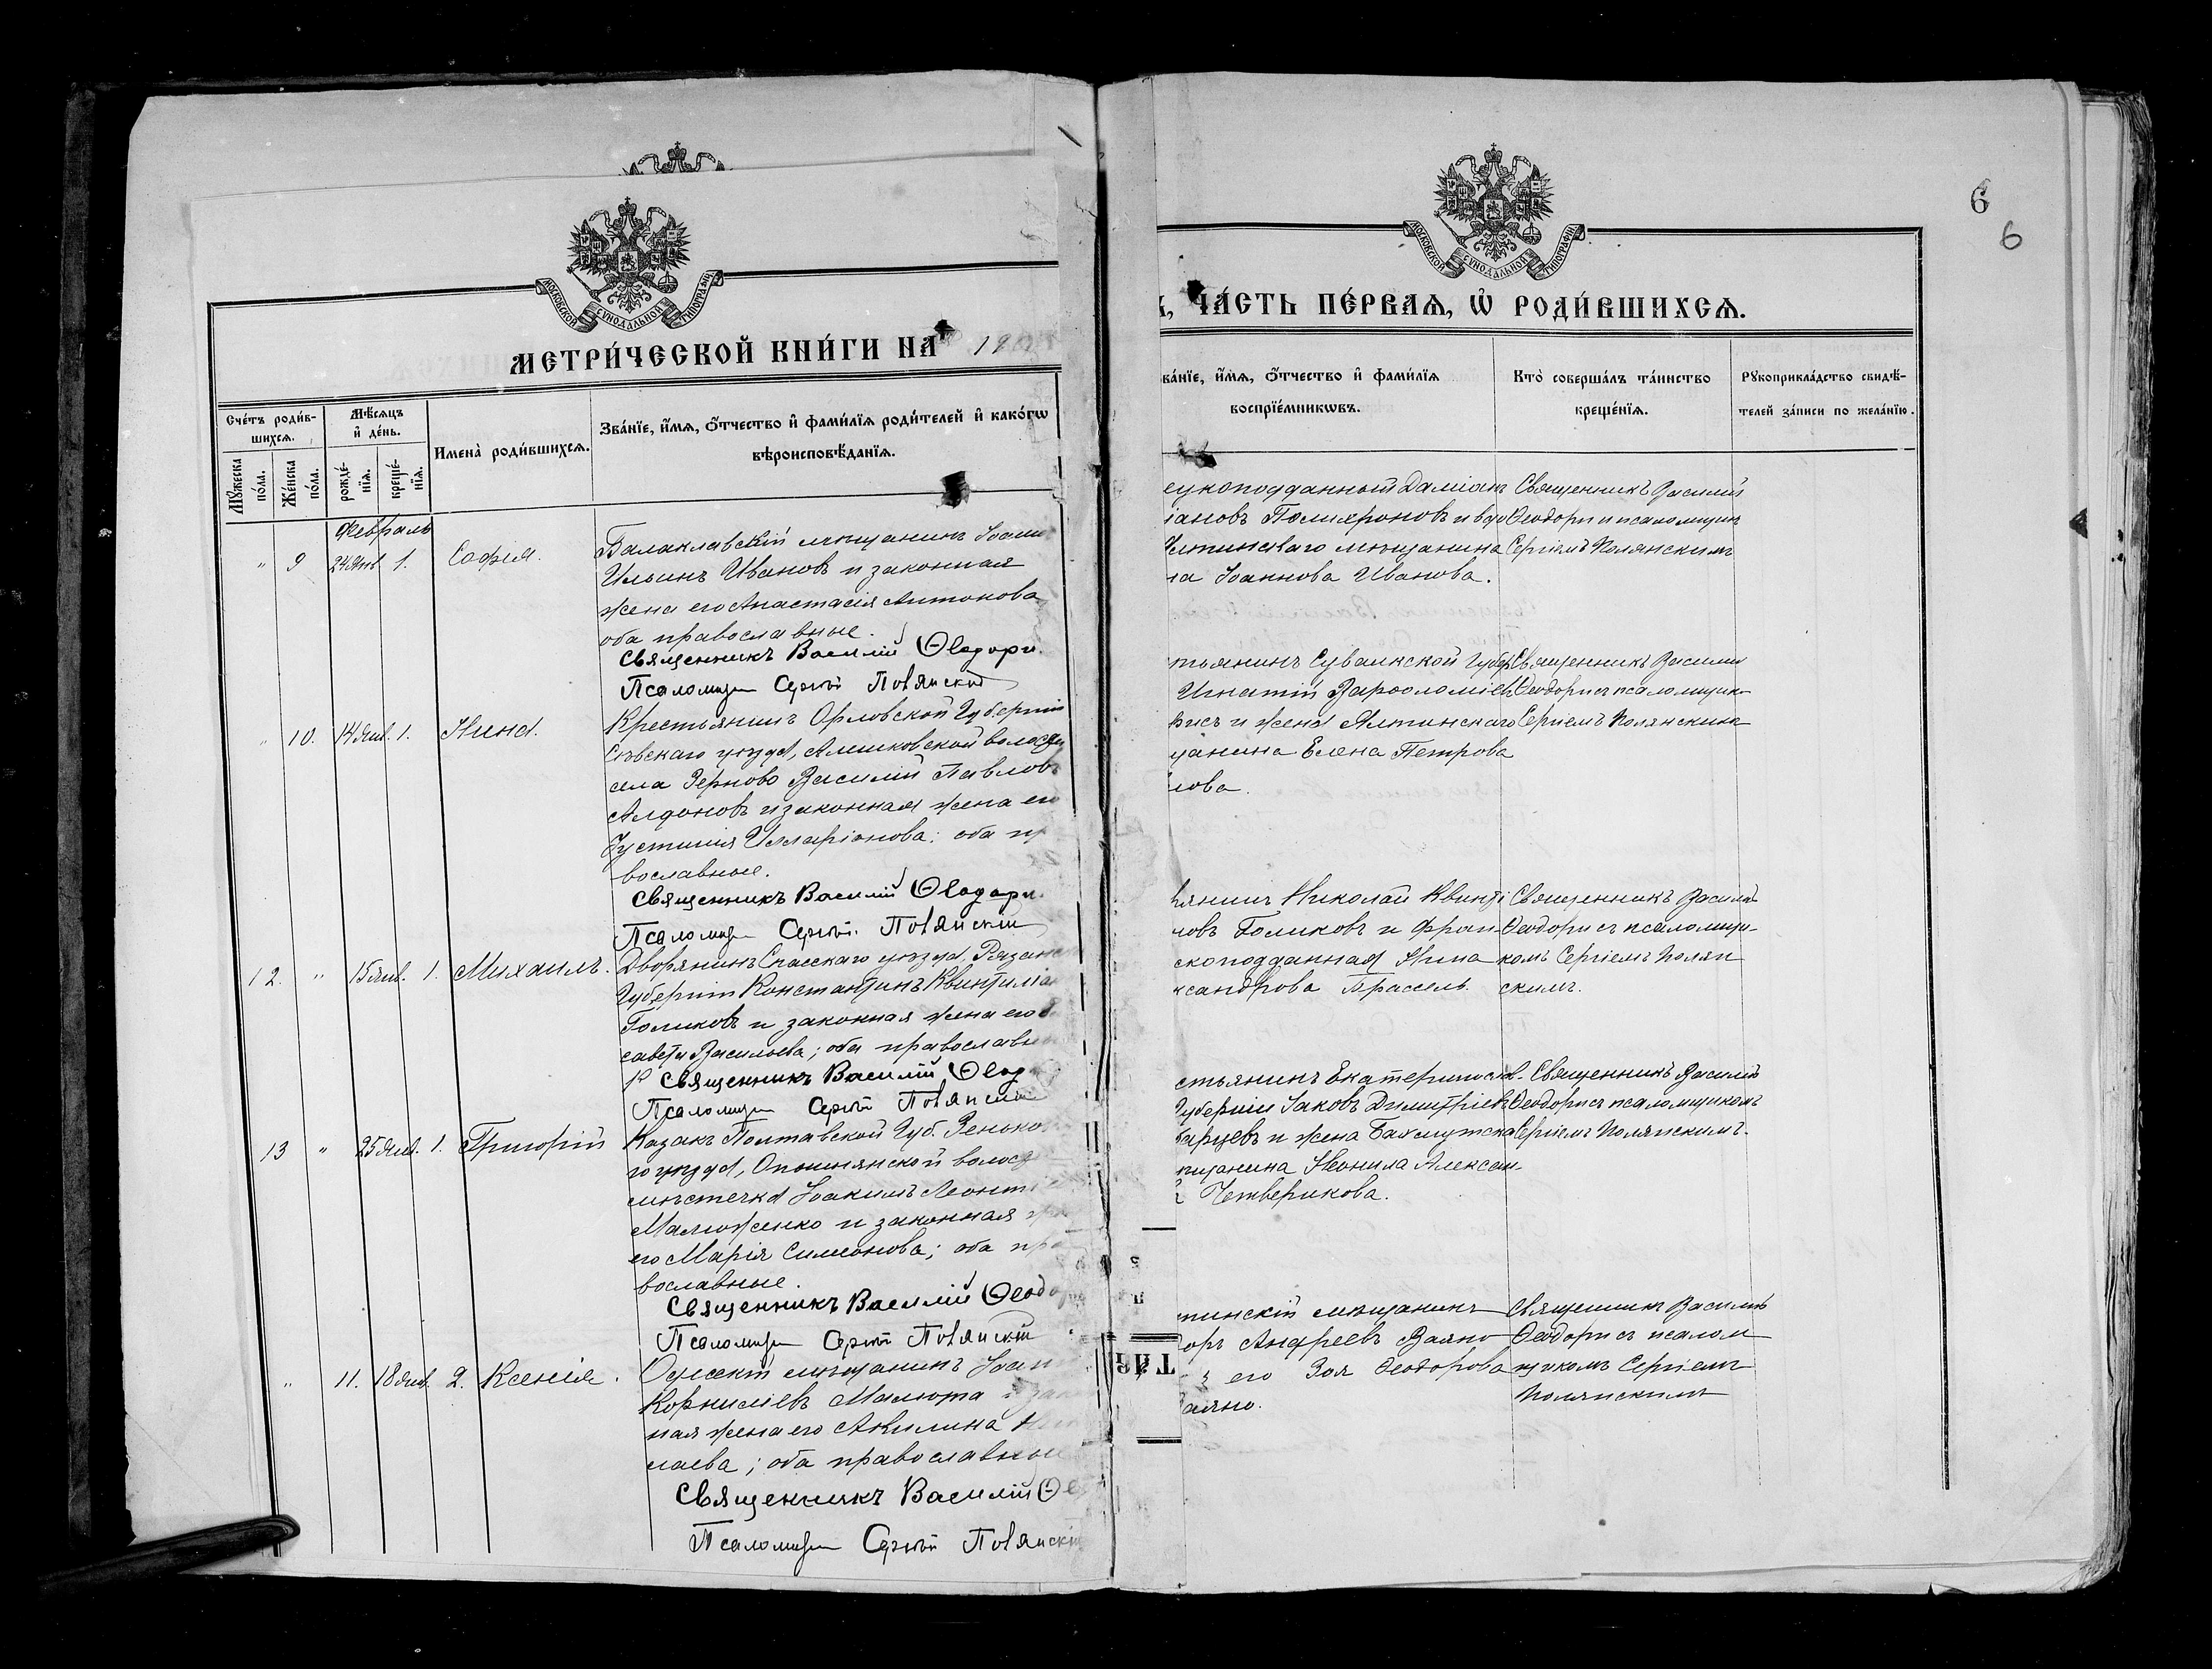 МОСКОВСКОЙ СѴНОДАЛЬНОЙ ТИПОГРАФІИ
МЕТРИ́ЧЕСКОЙ КНИ́ГИ НА
Сче́тъ роди́в-
шихся.
Мѣ́сяцъ
и҆ де́нь.
Мꙋ́жеска по́ла.
Же́нска по́ла.
рожде́-
нїя.
креще́-
нїя.
И҆мена̀ роди́вшихся.
Зва́нїе, и҆́мя, ѻ҆́тчество и҆ фами́лїя роди́телей и҆ како́гѡ
вѣроисповѣ́данїя.
Февраль
" 9 24 Янв. 1. Софія.
Балаклавскій мѣщанинъ Іоаннъ
Ильинъ Ивановъ и законная
жена его Анастасія Антонова
оба православные.
Священникъ Василій Ѳеодори.
Псаломщ Сергѣй Полянскій
" 10. 14 Янв. 1. Нина.
Крестьянинъ Орловской Губерніи
Сѣвскаго уѣзда, Алешковской волости
села Зерново Василій Павловъ
Алдоновъ и законная жена его
Іустинія Илларіонова; оба пр
вославные.
Священникъ Василій Ѳеодори.
Псаломщ Сергѣй Полянскій
12. " 15 Янв. 1. Михаилъ.
Дворянинъ Спасскаго уѣзда, Рязанс
Губерніи Константинъ Квинтиліа
Голиковъ и законная жена его
савета Васильева; оба православн
Священникъ Василій Ѳеод
Псаломщ Сергѣй Полянскій
13 " 25 Янв. 1. Григорій
Казакъ Полтавской Губ. Зеньков
го уѣзда, Опошнянской волост
мѣстечка Іоакимъ Леонтіе
Малюженко и законная же
его Марія Симеонова; оба пра
вославные.
Священникъ Василій Ѳеодо
Псаломщ Сергѣй Полянскій
" 11. 18 Янв. 2. Ксенія.
мѣщанинъ Іоан
Корниліевъ Малюта и зак
ная жена его Акилина Ни
лаева; оба православные
Священникъ Василій Ѳе
Псаломщ Сергѣй Полянскій
6
6
МОСКОВСКОЙ СѴНОДАЛЬНОЙ ТИПОГРАФІИ
ЧА́СТЬ ПЕ́РВАЯ, Ѽ РОДИ́ВШИХСЯ.
ва́нїе, и҆́мя, ѻ҆́тчество и҆ фами́лїя
воспрїе́мникѡвъ.
Кто̀ соверша́лъ та́инство
креще́нїя.
Рꙋкоприкла́дство свидѣ́-
телей за́писи по жела́нїю.
еукоподданный Даміанъ
іановъ Полихроновъ и вдо
Ялтинскаго мѣщанина
на Іоаннова Иванова.
Священникъ Василій
Ѳеодори и псаломщик
Сергіемъ Полянскимъ
тьянинъ Сувалкской Губер
Игнатій Варѳоломіев
висъ и жена Ялтинскаго
щанина Елена Петрова
лова.
Священникъ Василій
Ѳеодори съ псаломщик
Сергіемъ Полянским
янинъ Николай Квинті
новъ Голиковъ и Фран
скоподданная Нина
ксандрова Трассель.
Священникъ Василій
Ѳеодори съ псаломщи-
комъ Сергіемъ Полян
скимъ.
стьянинъ Екатеринослав-
Губерніи Іаковъ Димитріев
барцевъ и жена Бахмутска
мѣщанина Неонила Алексан-
Четверикова.
Священникъ Василій
Ѳеодори съ псаломщикомъ
Сергіемъ Полянскимъ.
тинскій мѣщанинъ
оръ Андреевъ Ваяно
его Зоя Ѳеодорова
аяно.
Священникъ Василій
Ѳеодори съ псалом
щикомъ Сергіемъ
Полянскимъ